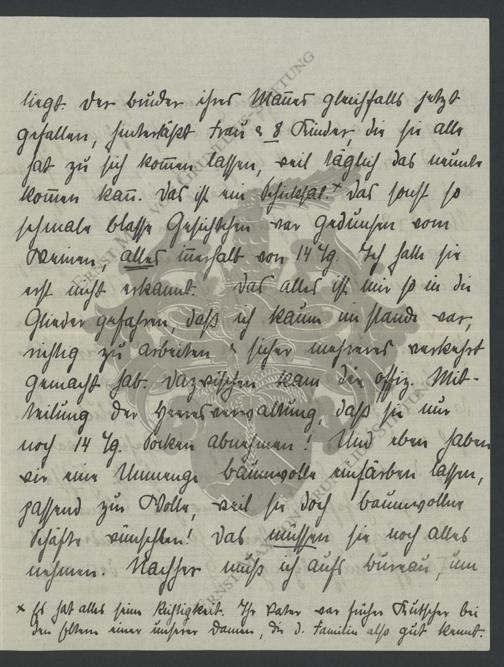 liegt. Der bruder ihres Mannes gleichfalls jetzt
gefallen, hinterläßt Frau & 8 Kinder die sie alle
hat zu sich kommen lassen, weil täglich das neunte
kommen kann. Das ist ein Schicksal.× Das sonst so
schmale blasse Gesichtchen war gedunsen vom
Weinen, alles innerhalb von 14 Tg. Ich hatte sie
erst nicht erkannt. Das alles ist mir so in die
Glieder gefahren, daß ich kaum im stande war,
richtig zu arbeiten & sicher mehreres verkehrt
gemacht hab. Dazwischen kam die offiz. Mit-
teilung der Heeresverwaltung, daß sie nur
noch 14 Tg. Socken abnehmen! Und eben haben
wir eine Unmenge baumwolle einfärben lassen,
passend zur Wolle, weil sie doch baumwollne
Schäfte wünschten! Das müssen sie noch alles
nehmen. Nachher muß ich aufs bureau, um
× Es hat alles seine Richtigkeit. Ihr Vater war früher Kutscher bei
den Eltern einer unserer Damen, die d. Familie also gut kennt.
ERNST MAX VON GRUNELIUS-STIFTUNG